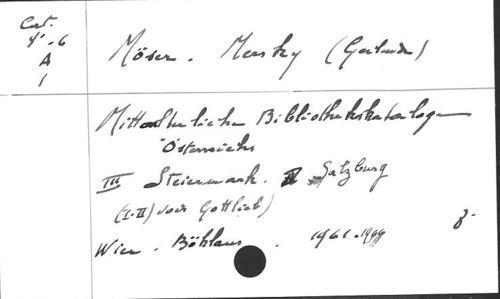 Cat.
4° - 6
A
1
Möser. Mersky (Gerlinde)
Mittelalterliche Bibliothekskataloge
Österreichs
III Steiermark. Salzburg
(I-II) voir Gottlieb)
Wien. Böhlaus. 1961-1999